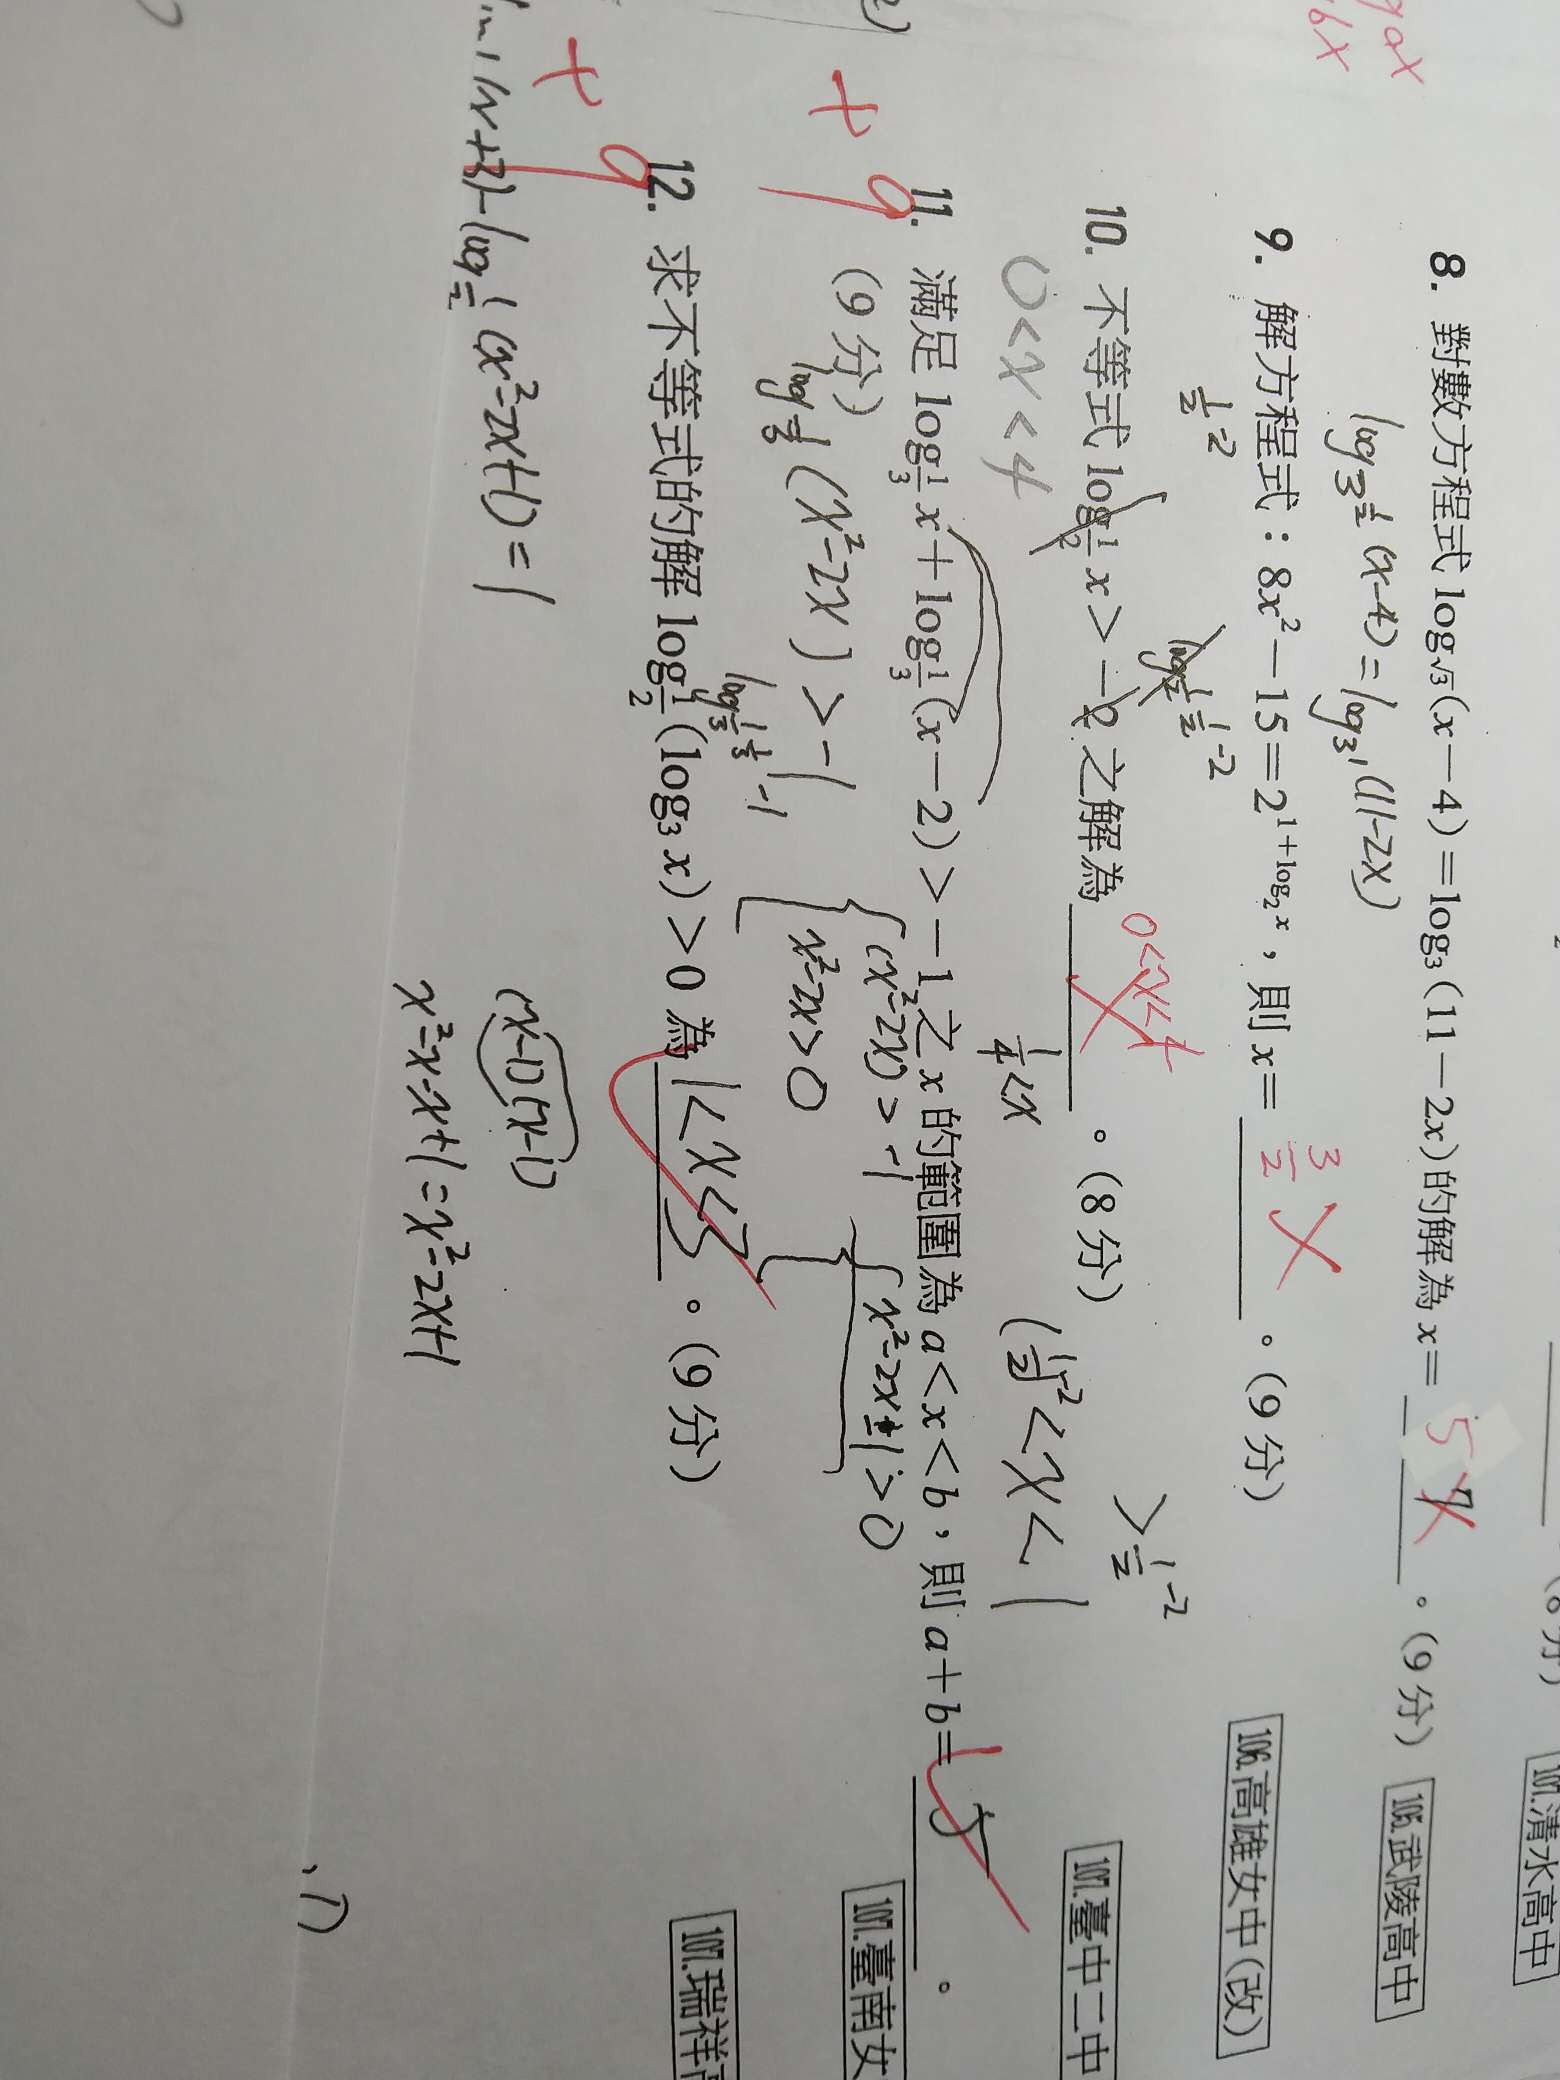 107.清水高中
8. 對數方程式 log√3(x－4)＝log3(11－2x)的解為 x＝ 5 。(9分) 105.武陵高中
log3½(x-4)=log31(11-2x)
9. 解方程式：8x²－15＝2^(1+log₂x)，則 x＝ 3/2 。(9分) 106.高雄女中(改)
½-2
>½-2
10. 不等式 log½ x＞－2 之解為 0<x<4 。(8分) 107.臺中二中
0<x<4
¼<x
(½)-²<x<1
11. 滿足 log⅓ x＋log⅓(x－2)＞－1 之 x 的範圍為 a＜x＜b，則 a＋b＝ 5 。 107.臺南女
(9分)
log⅓(x²-2x)>-1
(x²-2x)>-1
x²-2x>0
x²-2x+1>0
log⅓⅓-1
+9
12. 求不等式的解 log½(log3 x)＞0 為 1<x<3 。(9分) 107.瑞祥高
+9
(x+3)-log½(x²-2x+1)=1
(x-1)(x-1)
x²-x-x+1=x²-2x+1